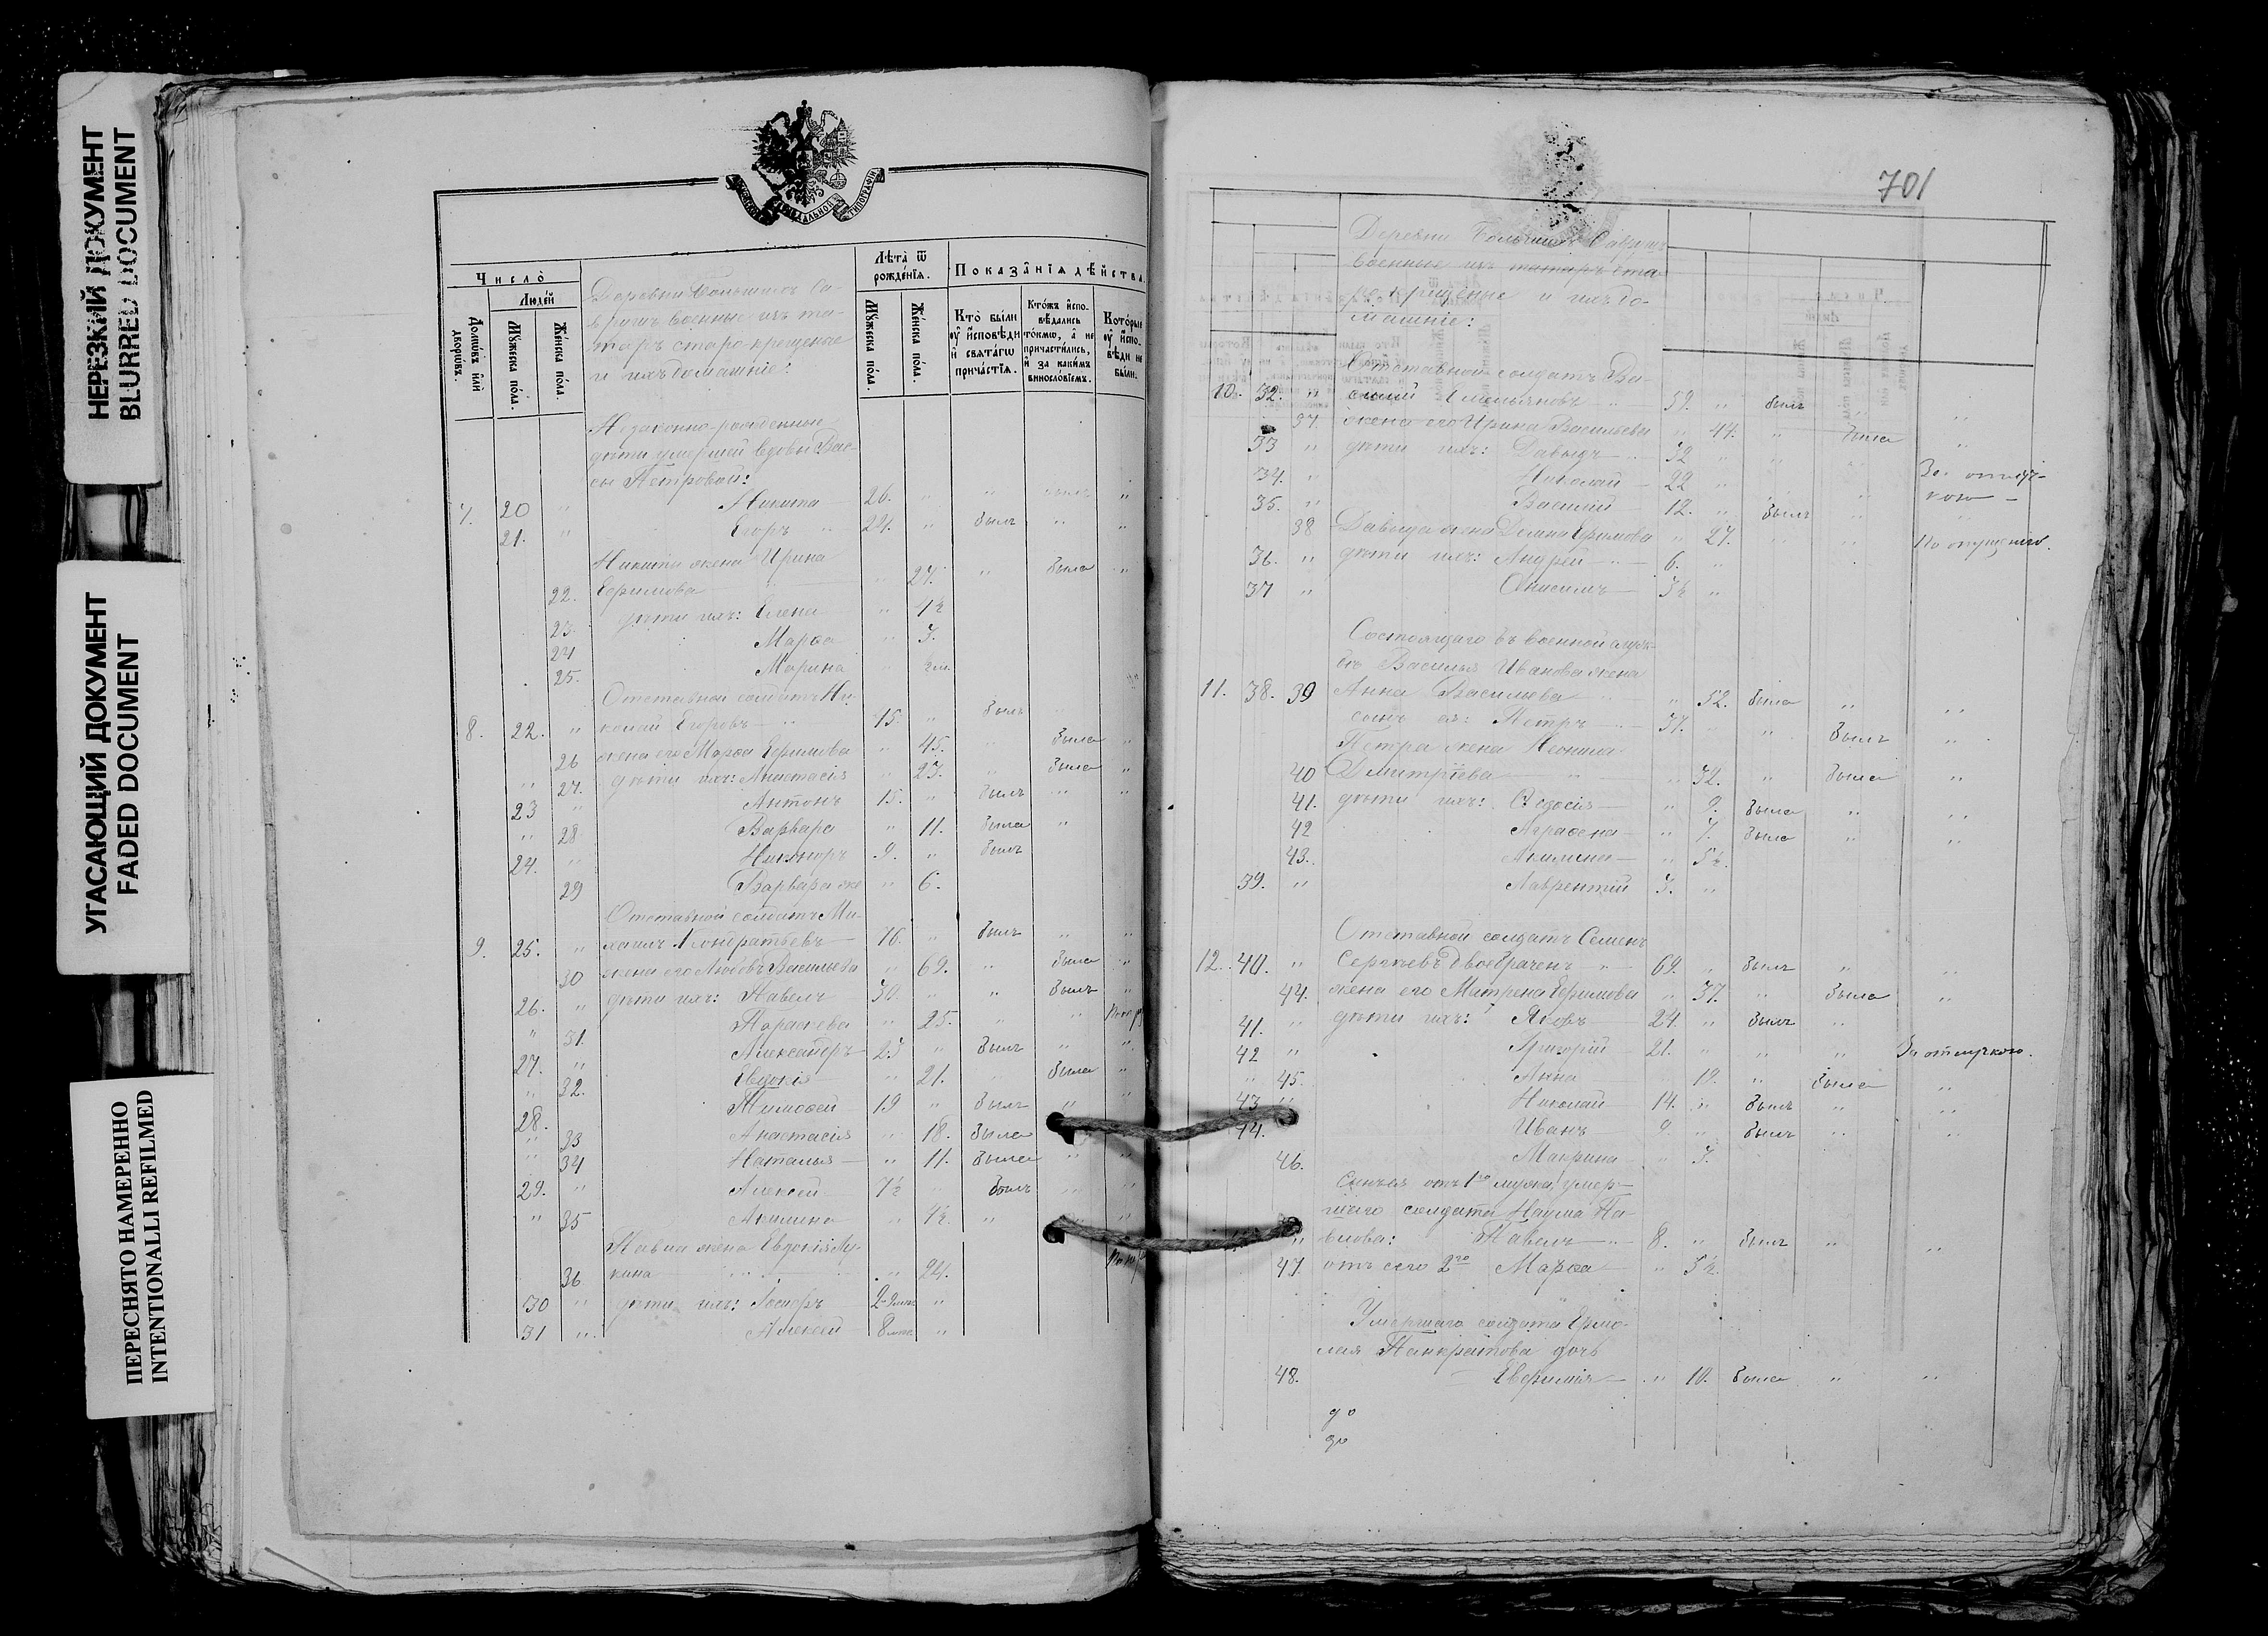 НЕРЕЗКИЙ ДОКУМЕНТ
BLURRED DOCUMENT
УГАСАЮЩИЙ ДОКУМЕНТ
FADED DOCUMENT
ПЕРЕСНЯТО НАМЕРЕННО
INTENTIONALLI REFILMED
Число̀
Люде́й
Домѡ́въ и҆лѝ дворѡ́въ.
Мꙋ́жеска по́ла.
Же́нска по́ла.
Деревни Большихъ Са-
врушъ военные изъ та-
таръ старо-крещеные
и ихъ домашніе:
Лѣ́та ѿ рожде́нїѧ.
Мꙋ́жеска по́ла.
Же́нска по́ла.
Показа́нїѧ дѣ́йства
Кто̀ бы́ли оу҆ и҆сповѣ́ди и҆ свѧта́гѡ прича́стїѧ.
Кто́жъ и҆спо-вѣ́дались то́кмѡ, а҆ не причасти́лись, и҆ за каки́мъ винословїемъ.
Кото́рые оу҆ и҆спо-вѣ́ди не бы́ли.
Незаконно-рожденные
дѣти умершей вдовы Вас-
сы Петровой:
7. 20 " Никита 26. " " былъ "
21. " Егоръ " 24. " былъ " "
Никиты жена Ирина
22. Ефимова " 27. " была "
23. дѣти ихъ: Елена " 4½
24 Марѳа " 3.
25. Марина " ½ м.
Отставной солдатъ Ни-
8. 22. " колай Егоровъ " 75. " былъ "
26 жена его Марѳа Ефимова " 45. " была "
" 27. дѣти ихъ: Анастасія " 23. " была "
23 " Антонъ 15. " былъ " "
" 28 Варвара " 11. была "
24. " Никаноръ 9. " былъ
29 Варвара же " 6.
Отставной солдатъ Ми-
9. 25. " хаилъ Кондратьевъ 76. " былъ " "
30 жена его Любовь Васильева " 69. " была "
26. " дѣти ихъ: Павелъ 30. " " былъ "
" 31. Параскева " 25. " "
27. " Александръ 23 " былъ " "
" 32. Евдокія " 21. " была "
28. " Тимоѳей 19 " былъ " "
" 33 Анастасія " 18. была
" 34 Наталья " 11. была " "
29. " Алексѣй 7½ " былъ " "
" 35 Акилина " 4½. " " "
Павла жена Евдокія Лу-
36 кина " 24.
30 " дѣти ихъ: "
31 " Алексѣй 8 "
701
Деревни Большихъ Саврушъ
военные изъ татаръ ста-
рокрещеные и ихъ до-
машніе:
Отставной солдатъ Ва-
10. 32. " силій Емельяновъ 59. " былъ " "
37. жена его Ирина Васильева " 44. " была "
33 " дѣти ихъ: Давыдъ 32 " " "
34. " Николай 22 " " За отлуч-
кою
35. " Василій 12. " былъ " "
38 Давыда жена Ефимова " 27. " " По опущенію.
36. " дѣти ихъ: Андрей 6. "
37 " Онисимъ 3½ "
Состоящаго въ военной служ-
бѣ Василья Иванова жена
11. 38. 39 Анна Васильева " 52. была " "
сынъ ея: Петръ 37. " " былъ "
Петра жена Неонила
40 Димитріева " 32. " была "
41. дѣти ихъ: Ѳедосія " 9. была " "
42 Аграфена " 7. была " "
43. Акилина " 5½.
39. " Лаврентій 3. "
Отставной солдатъ Семенъ
12. 40. " Сергѣевъ двоебраченъ " 69. " былъ " "
44. жена его Матрена Ефимова " 37. " была "
41. " дѣти ихъ: Яковъ 24. " былъ "
42 " Григорій 21. " " " За отлучкою.
" 45. Анна 19. " была "
43 " Николай 14. " былъ " "
44. Иванъ 9. " былъ " "
46. Макрина " 3.
Сынъ ея отъ 1го мужа, умер-
шаго солдата Наума Па-
" влова: Павелъ " 8. " былъ " "
47. отъ сего 2го Марѳа " 5½.
Умершаго солдата Ермо-
лая Панкратова дочь
48. Евфимія " 10. была " "
до
до